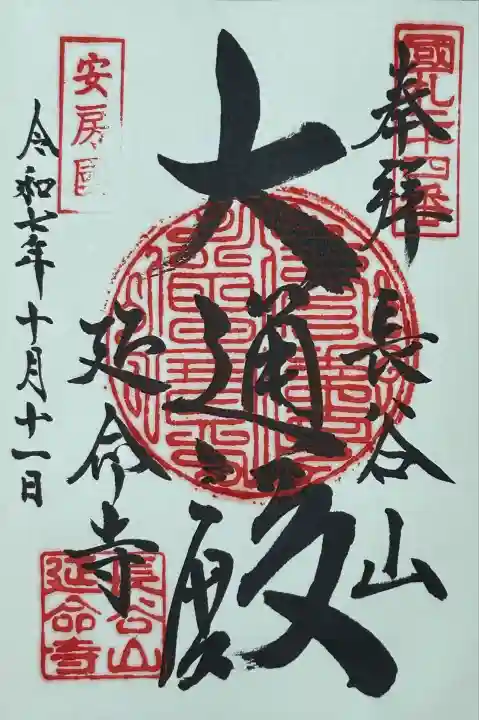 國札二十四番
奉拝
長谷山
大通殿
安房國
延命寺
長谷山
延命寺
令和七年十月十一日